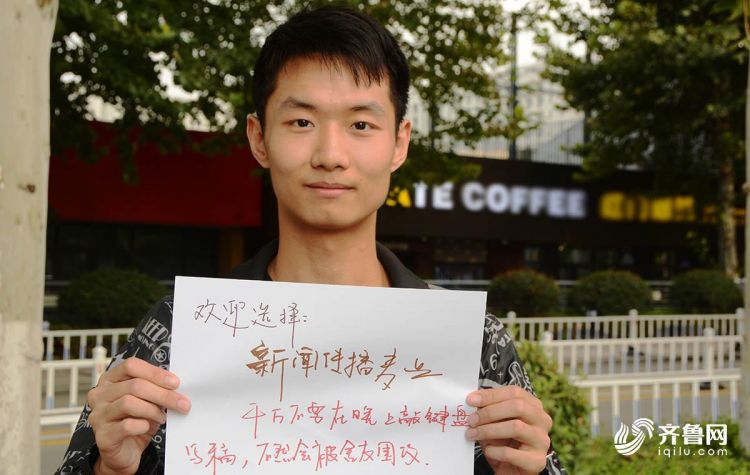 ATE COFFEE
欢迎选择:
新闻传播专业
千万不要在晚上敲键盘
写稿，不然会被舍友围攻.
齐鲁网
iqilu.com